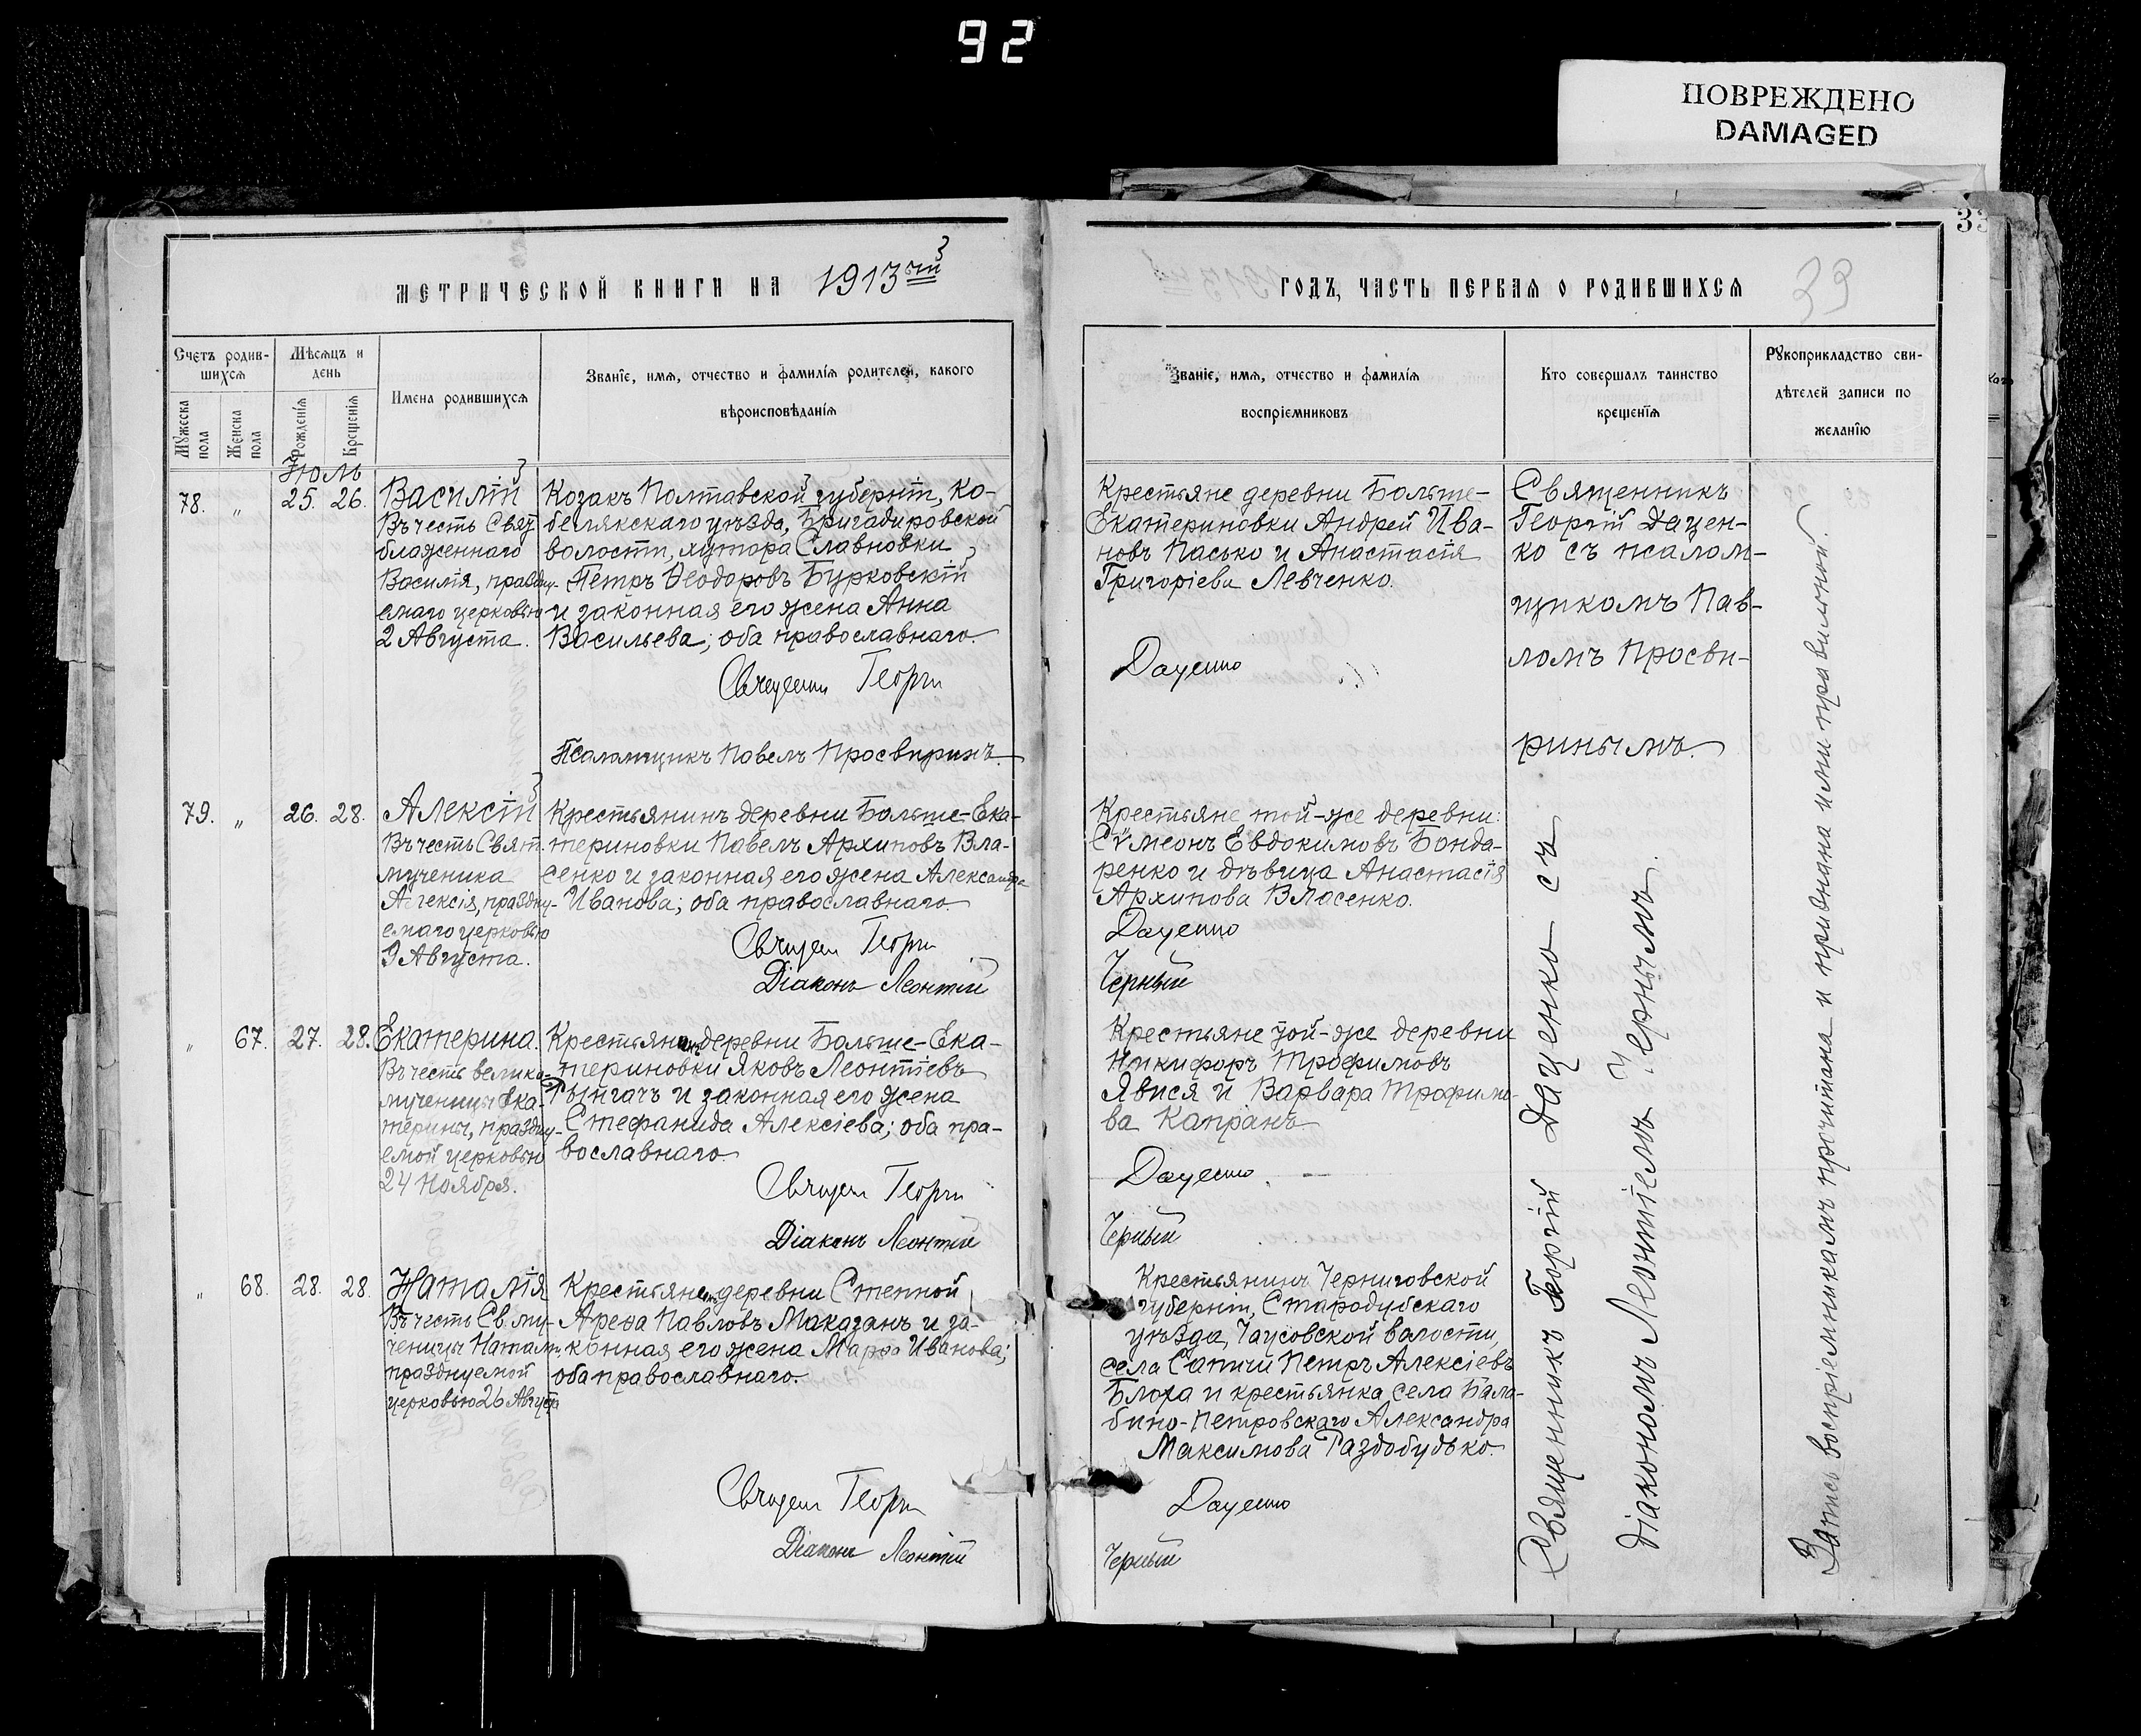 92
ПОВРЕЖДЕНО
DAMAGED
33
МЕТРИЧЕСКОЙ КНИГИ НА 1913ый
ГОДЪ, ЧАСТЬ ПЕРВАЯ О РОДИВШИХСЯ
33
Счетъ родив-
шихся
Мѣсяцъ и
день
Имена родившихся
Званїе, имя, отчество и фамилїя родителей, какого
вѣроисповѣданїя
Мужеска
пола
Женска
пола
Рожденїя
Крещенїя
Званїе, имя, отчество и фамилїя
воспрїемниковъ
Кто совершалъ таинство
крещенїя
Рукоприкладство сви-
дѣтелей записи по
желанїю
Іюль
78. " 25. 26. Василій
Въ честь Свят.
блаженнаго
Василія, праздну-
емаго церковью
2 Августа.
Козакъ Полтавской губерніи, Ко-
белякскаго уѣзда, Бригадировской
волости, хутора Славновки
Петръ Ѳеодоровъ Бурковскій
и законная его жена Анна
Васильева; оба православнаго.
Священ Георгій
Псаломщикъ Павелъ Просвиринъ.
Крестьяне деревни Больше-
Екатериновки Андрей Ива-
новъ Пасько и Анастасія
Григоріева Левченко.
Даценко
Священникъ
Георгій Дацен-
ко съ псалом-
щикомъ Пав-
ломъ Просви-
ринымъ.
79. " 26. 28. Алексій
Въ честь Свят.
мученика
Алексія, праздну-
емаго церковью
9 Августа.
Крестьянинъ деревни Больше-Ека-
териновки Павелъ Архиповъ Вла-
сенко и законная его жена Александра
Иванова; оба православнаго.
Священ Георгій
Діаконъ Леонтій
Крестьяне той-же деревни:
Сѵмеонъ Евдокимовъ Бонда-
ренко и дѣвица Анастасія
Архипова Власенко.
Даценко
Черный
" 67. 27. 28. Екатерина.
Въ честь велико-
мученицы Ека-
терины, праздну-
емой церковью
24 Ноября.
Крестьянинъ деревни Больше-Ека-
териновки Яковъ Леонтіевъ
и законная его жена
Стефанида Алексіева; оба пра-
вославнаго.
Священ Георгій
Діаконъ Леонтій
Крестьяне той-же деревни
Никифоръ Трофимовъ
Явися и Варвара Трофимо-
ва Капранъ
Даценко
Черный
" 68. 28. 28. Наталія
Въ честь Св. му-
ченицы Наталіи
празднуемой
церковью 26 Августа
Крестьянинъ деревни Степной
Арефа Павловъ Маказанъ и за-
конная его жена Марфа Иванова;
оба православнаго.
Священ Георгій
Діаконъ Леонтій
Крестьянинъ Черниговской
губерніи, Стародубскаго
уѣзда, Чаусовской волости,
села Петръ Алексіевъ
Блоха и крестьянка села Бала-
бино-Петровскаго Александра
Максимова Раздобудько.
Даценко
Черный
Священникъ Георгій Даценко съ
діакономъ Леонтіемъ Чернымъ.
Запись воспріемникамъ прочитана и признана ими правильной.